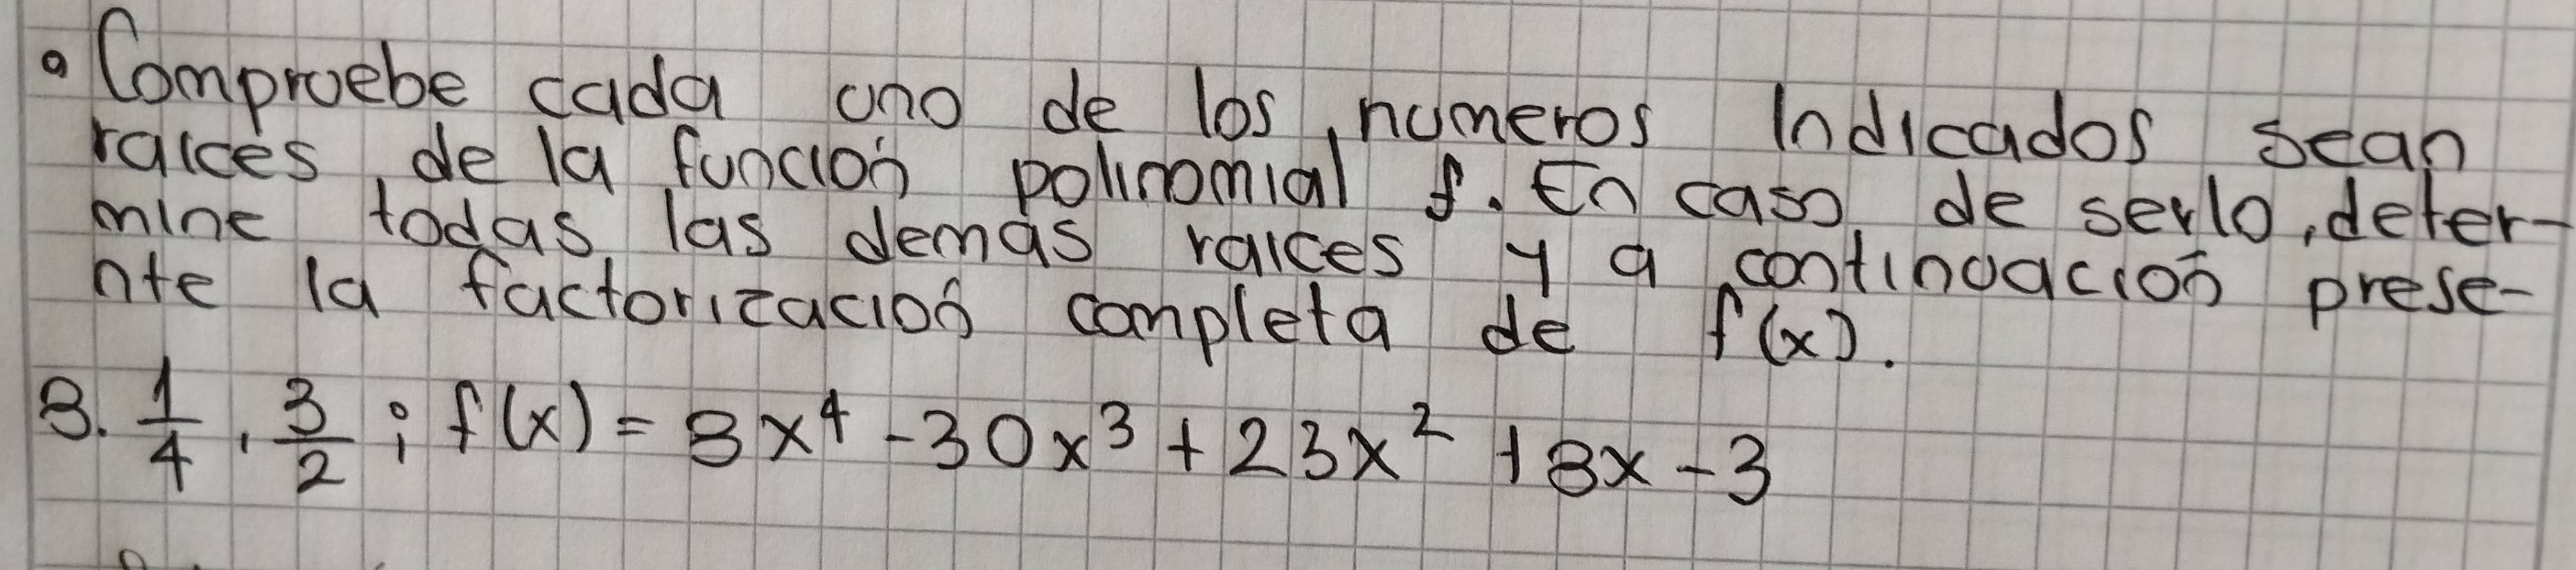 • Compruebe cada uno de los números Indicados sean
raíces de la función polinomial f. En caso de serlo, deter-
mine todas las demás raíces y a continuación prese-
nte la factorización completa de f(x).
8. 1/4, 3/2; f(x) = 8x⁴ - 30x³ + 23x² + 8x - 3